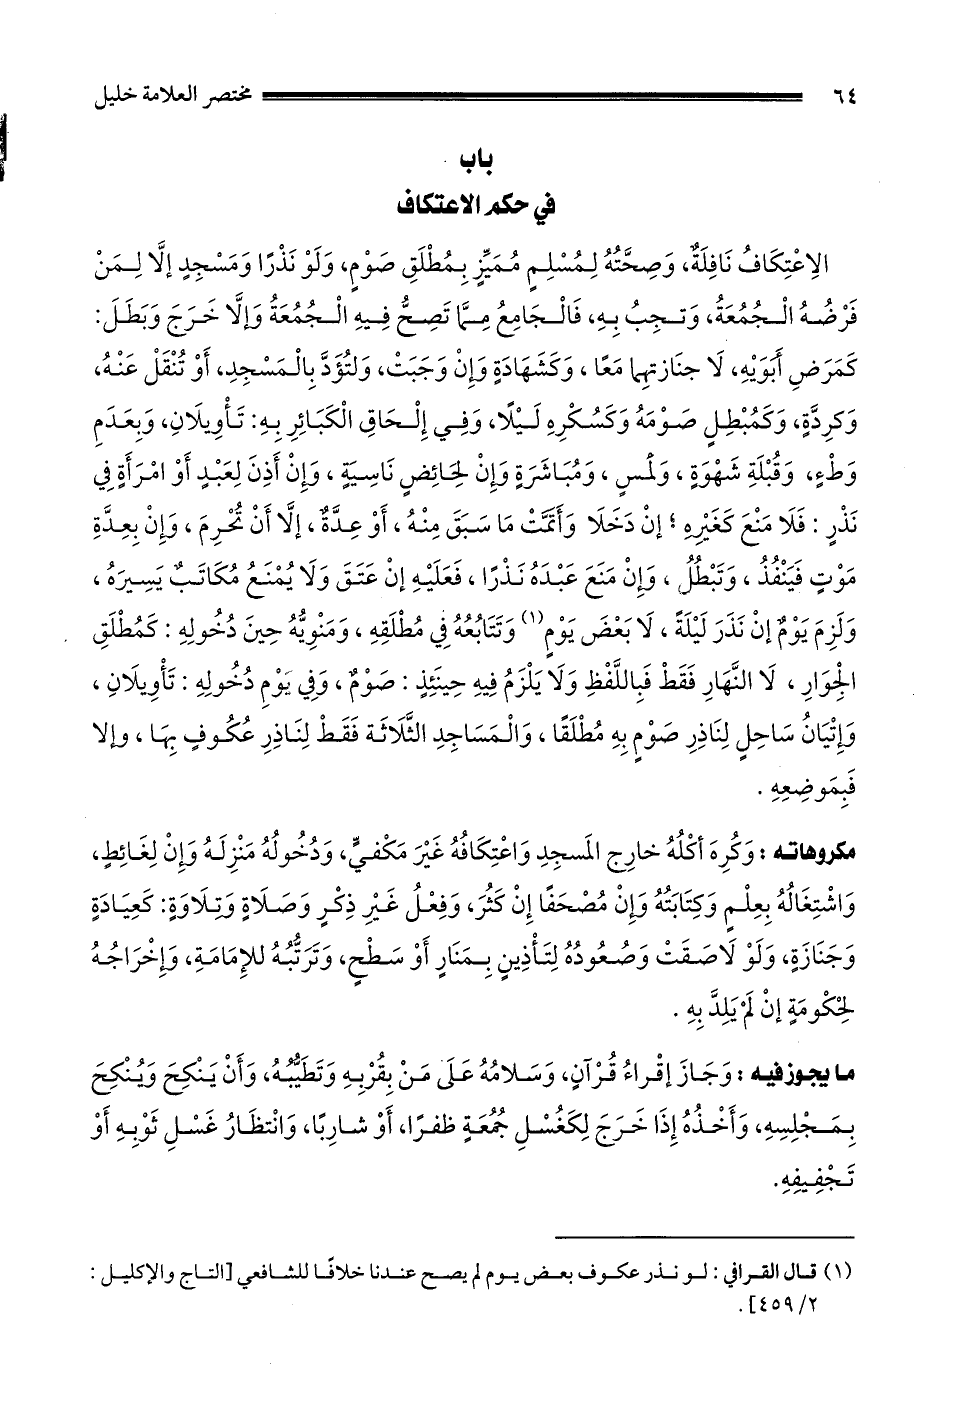 ٦٤ مختصر العلامة خليل
باب
في حكم الاعتكاف
الِاعْتِكَافُ نَافِلَةٌ، وَصِحَّتُهُ لِمُسْلِمٍ مُمَيِّزٍ بِمُطْلَقِ صَوْمٍ، وَلَوْ نَذْرًا وَمَسْجِدٍ إلَّا لِمَنْ
فَرْضُهُ الْجُمُعَةُ، وَتَجِبُ بِهِ، فَالْجَامِعُ مِمَّا تَصِحُّ فِيهِ الْجُمُعَةُ وَإِلَّا خَرَجَ وَبَطَلَ:
كَمَرَضِ أَبَوَيْهِ، لَا جِنَازتِهِما مَعًا ، وَكَشَهَادَةٍ وَإِنْ وَجَبَتْ، وَلْتُؤَدَّ بِالْمَسْجِدِ، أَوْ تُنْقَلْ عَنْهُ،
وَكَرِدَّةٍ، وَكَمُبْطِلٍ صَوْمَهُ وَكَسُكْرِهِ لَيْلًا، وَفِي إلْحَاقِ الْكَبَائِرِ بِهِ: تَأْوِيلَانِ، وَبِعَدَمِ
وَطْءٍ، وَقُبْلَةِ شَهْوَةٍ ، وَلَمْسٍ ، وَمُبَاشَرَةٍ وَإِنْ لِحَائِضٍ نَاسِيَةٍ ، وَإِنْ أَذِنَ لِعَبْدٍ أَوْ امْرَأَةٍ فِي
نَذْرٍ : فَلَا مَنْعَ كَغَيْرِهِ ؛ إنْ دَخَلَا وَأَتَمَّتْ مَا سَبَقَ مِنْهُ ، أَوْ عِدَّةٌ ، إلَّا أَنْ تُحْرِمَ ، وَإِنْ بِعِدَّةِ
مَوْتٍ فَيَنْفُذُ ، وَتَبْطُلُ ، وَإِنْ مَنَعَ عَبْدَهُ نَذْرًا ، فَعَلَيْهِ إنْ عَتَقَ وَلَا يُمْنَعُ مُكَاتَبٌ يَسِيرَهُ ،
وَلَزِمَ يَوْمٌ إنْ نَذَرَ لَيْلَةً ، لَا بَعْضَ يَوْمٍ(١) وَتَتَابُعُهُ فِي مُطْلَقِهِ ، وَمَنْوِيُّهُ حِينَ دُخُولِهِ : كَمُطْلَقِ
الْجِوَارِ ، لَا النَّهَارِ فَقَطْ فَبِاللَّفْظِ وَلَا يَلْزَمُ فِيهِ حِينَئِذٍ : صَوْمٌ ، وَفِي يَوْمِ دُخُولِهِ : تَأْوِيلَانِ ،
وَإِتْيَانُ سَاحِلٍ لِنَاذِرِ صَوْمٍ بِهِ مُطْلَقًا ، وَالْمَسَاجِدِ الثَّلَاثَة فَقَطْ لِنَاذِرِ عُكُوفٍ بِهَا ، وإلا
فَبِمَوضِعِهِ .
مكروهاته : وَكُرِهَ أَكْلُهُ خارِجِ المَسجِدِ وَاعْتِكَافُهُ غَيْرَ مَكْفِيٍّ، وَدُخُولُهُ مَنْزِلَهُ وَإِنْ لِغَائِطٍ،
وَاشْتِغَالُهُ بِعِلْمٍ وَكِتَابَتُهُ وَإِنْ مُصْحَفًا إنْ كَثُرَ، وَفِعْلُ غَيْرِ ذِكْرٍ وَصَلَاةٍ وَتِلَاوَةٍ: كَعِيَادَةٍ
وَجَنَازَةٍ، وَلَوْ لَاصَقَتْ وَصُعُودُهُ لِتَأْذِينٍ بِمَنَارٍ أَوْ سَطْحٍ، وَتَرَتُّبُهُ لِلإِمَامَةِ، وَإِخْرَاجُهُ
لِحُكُومَةٍ إنْ لَمْ يَلِدَّ بِهِ .
ما يجوز فيه : وَجَازَ إقْرَاءُ قُرْآنٍ، وَسَلَامُهُ عَلَى مَنْ بِقُرْبِهِ وَتَطَيُّبُهُ، وَأَنْ يَنْكِحَ وَيُنْكِحَ
بِمَجْلِسِهِ، وَأَخْذُهُ إذَا خَرَجَ لِكَغُسْلِ جُمُعَةٍ ظفرًا، أَوْ شاربًا، وَانْتِظَارُ غَسْلِ ثَوْبِهِ أَوْ
تَجْفِيفِهِ.
(١) قال القرافي : لو نذر عكوف بعض يوم لم يصح عندنا خلافًا للشافعي [التاج والإكليل :
٢/ ٤٥٩] .